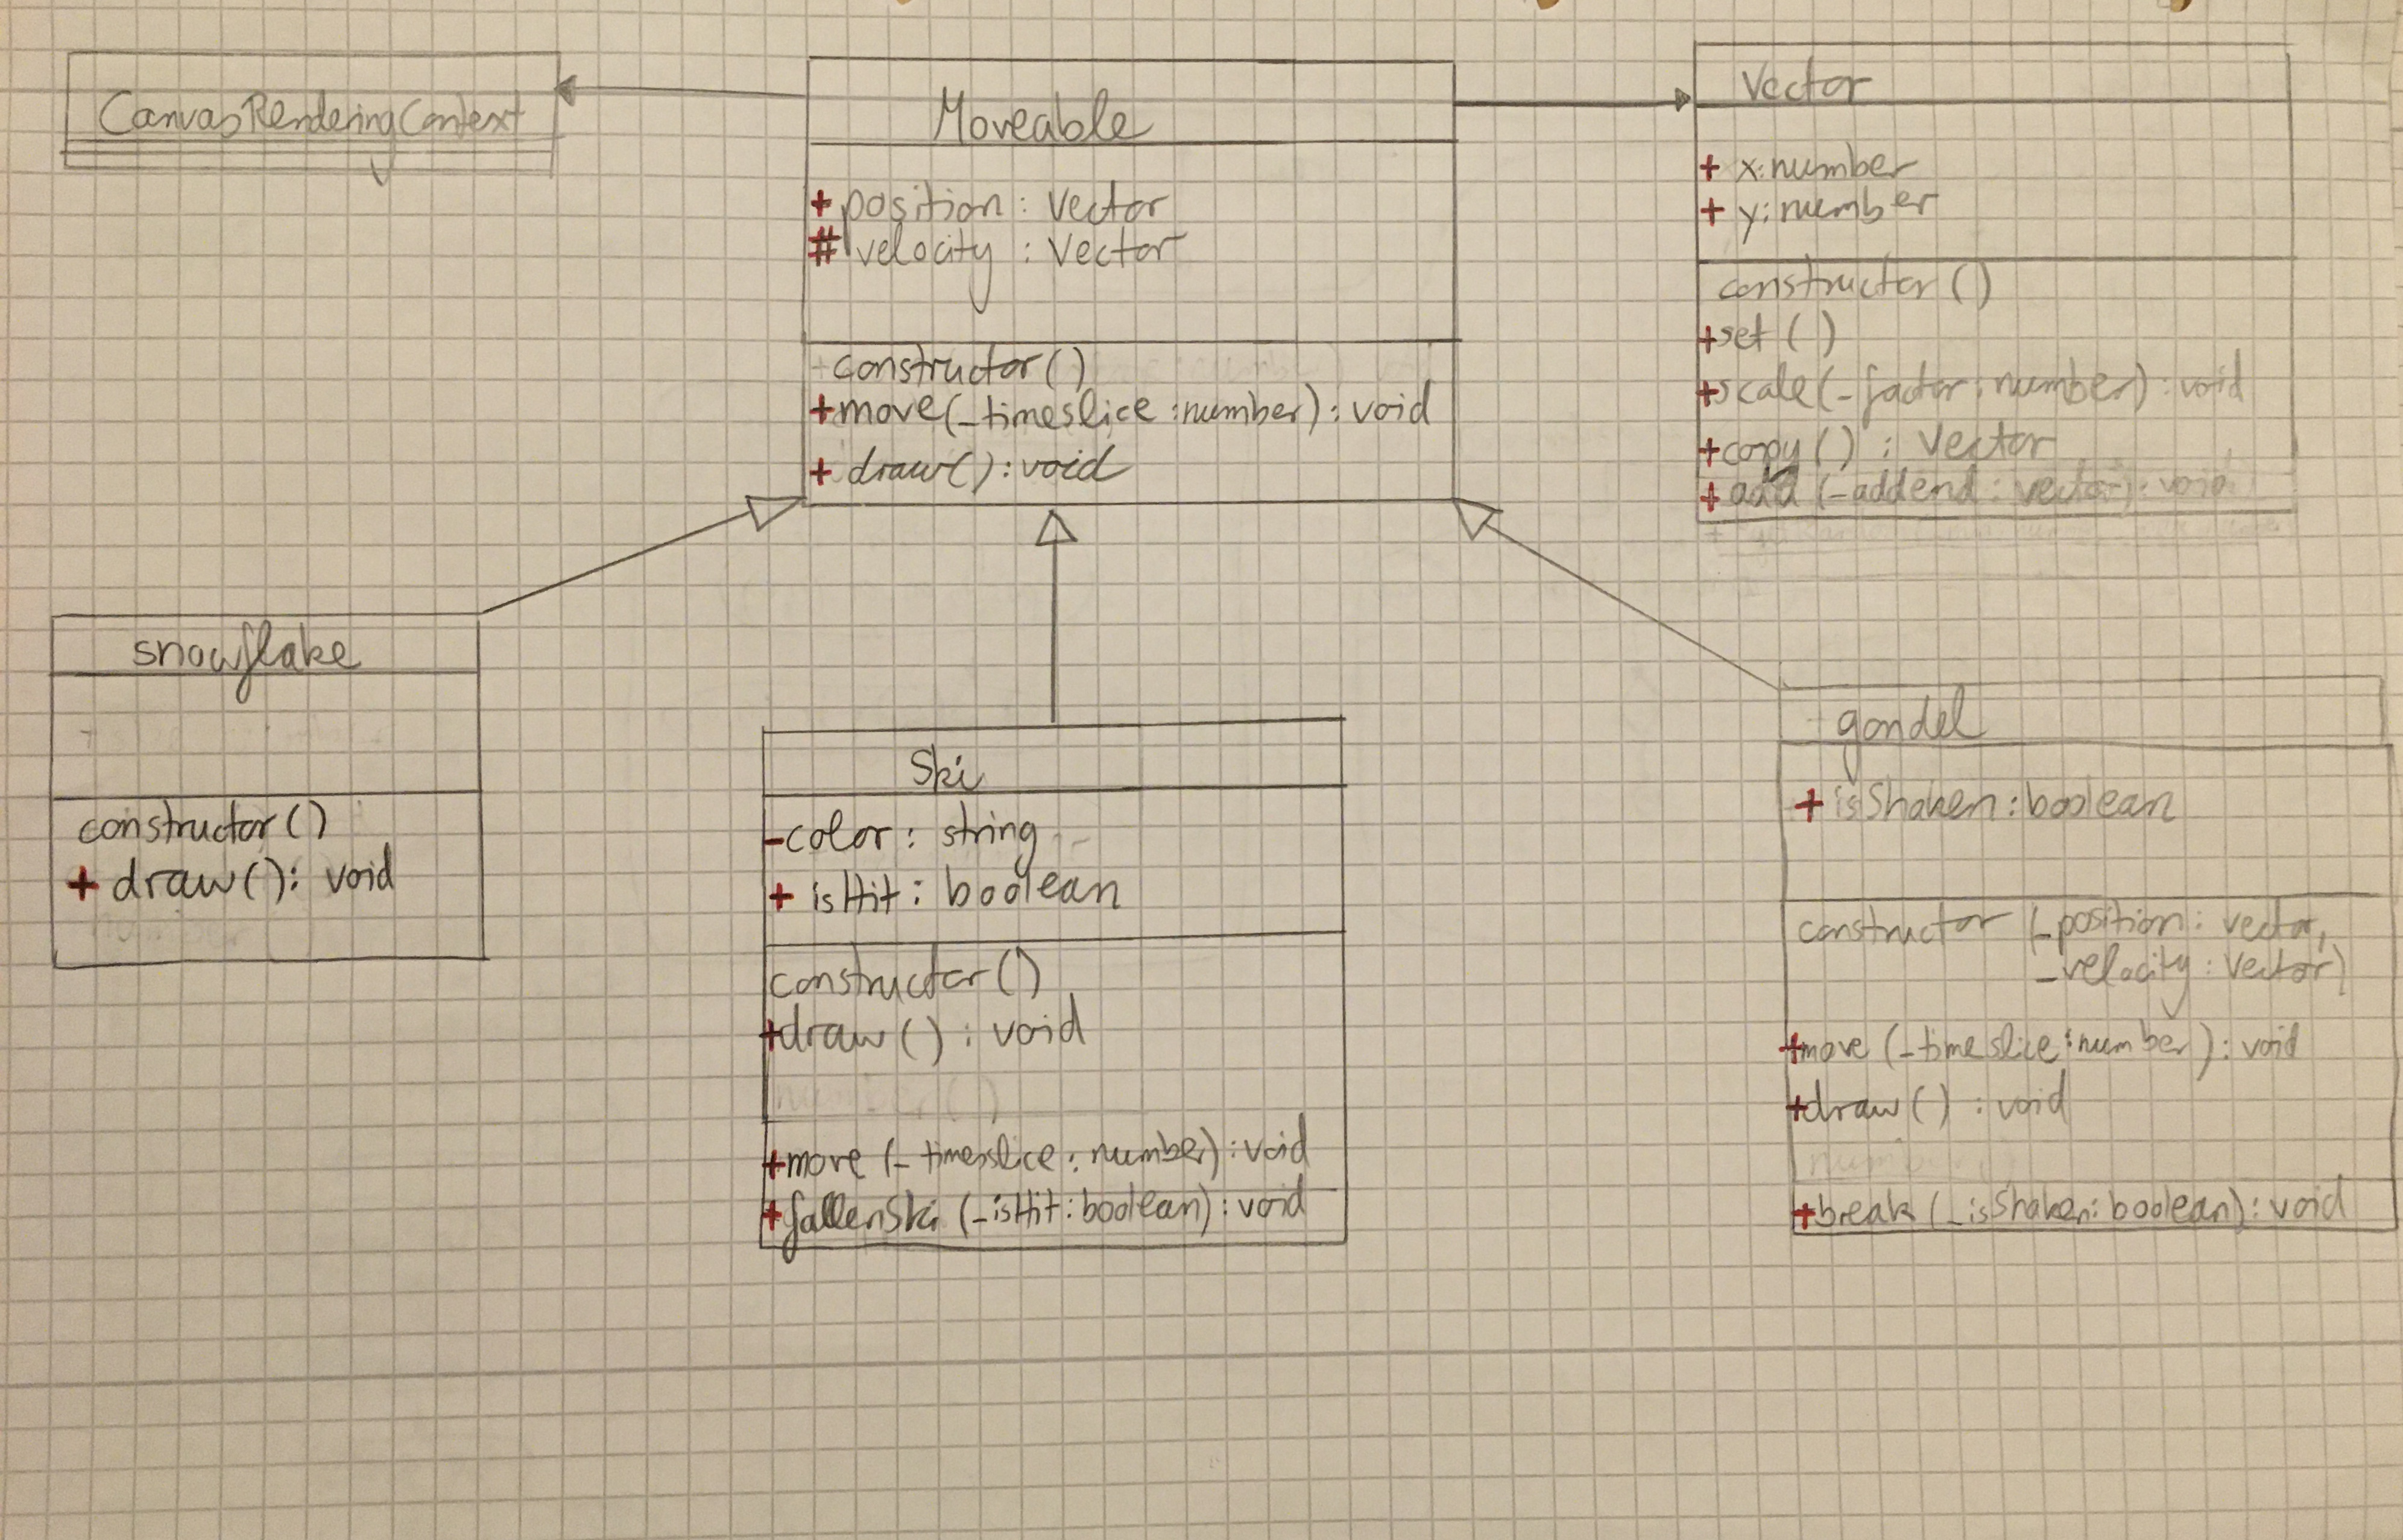 CanvasRenderingContext
Moveable
+ position : Vector
# velocity : Vector
constructor()
+move(_timeslice :number) : void
+ draw() : void
Vector
+ x: number
+ y: number
constructor ()
+set ()
+scale(_factor : number) : void
+copy () : Vector
+ add (_addend : vector) : void
snowflake
constructor ()
+ draw(): void
Ski
-color : string
+ isHit : boolean
constructor ()
+draw () : void
number ()
+move (_timeslice : number) : void
+fallenSki (_isHit : boolean) : void
gondel
+ isShaken : boolean
constructor (_position : vector,
_velocity : Vector)
+move (_timeslice : number) : void
+draw () : void
+break (_isShaken : boolean) : void